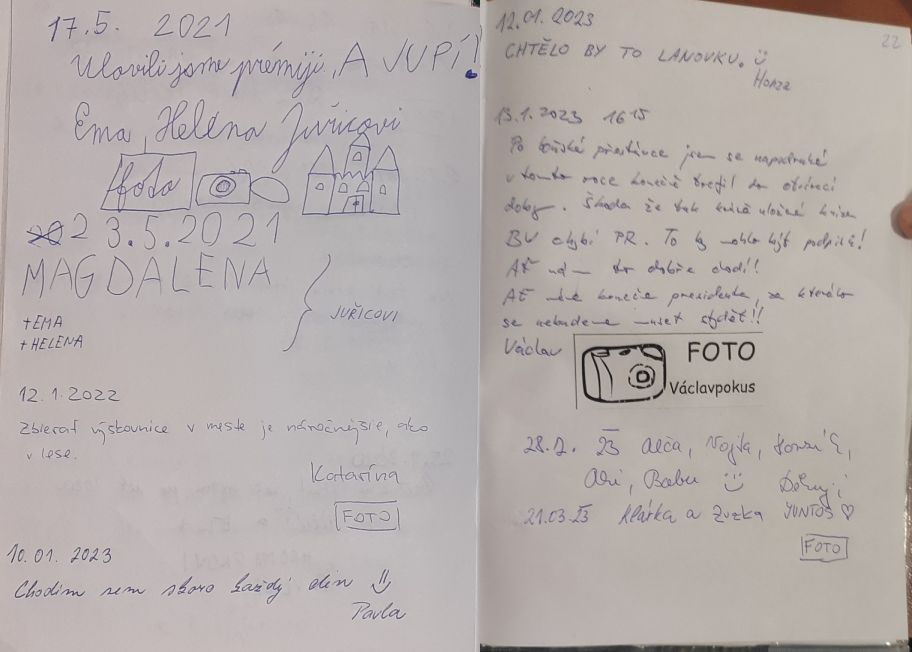 17.5. 2021
Ulovili jsme prémiji, A JUPÍ!
Ema, Helena Juřicovi
foto
23.5.2021
MAGDALENA
+EMA
+HELENA
JUŘICOVI
12.1.2022
Zbierať výskovnice v meste je náročnejšie, ako
v lese.
Katarína
FOTO
10.01. 2023
Chodím sem skoro každý den
Pavla
22
12.01.2023
CHTĚLO BY TO LANOVKU.
Honza
13.1.2023 16 15
Po přestávce jsem se napodruhé
v tomto roce konečně trefil do otvírací
doby. Škoda že tak uložené
BV chybí PR. To by mohlo být
Ať nám to dobře chodí!
Ať máme konečně prezidenta, za kterého
se nebudeme muset stydět!!
Václav
FOTO
Václavpokus
28.2. 23 Alča, Vojta,
Babu
21.03.23 Klárka a Zuzka JUNTOS ♡
FOTO